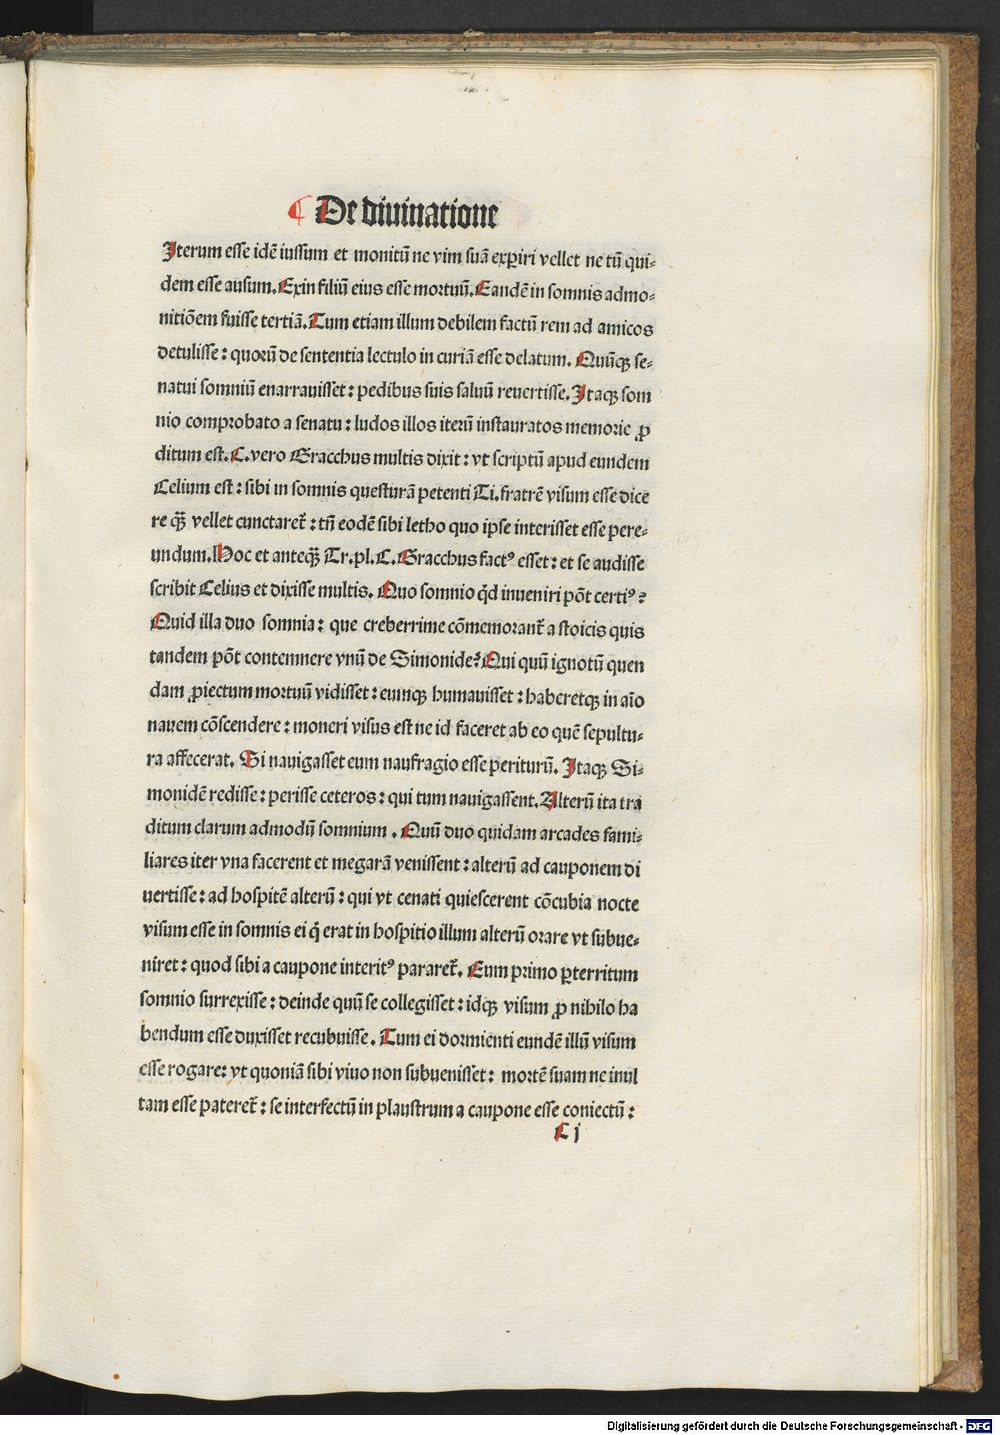 ¶ De diuinatione
Iterum esse idē iussum et monitū ne vim suā exꝑiri vellet ne tū qui-
dem esse ausum. Exin filiū eius esse mortuū. Eandē in somnis admo-
nitiōem fuisse tertiā. Tum etiam illum debilem factū rem ad amicos
detulisse: quorū de sententia lectulo in curiā esse delatum. Quūqꝫ se-
natui somniū enarrauisset: pedibus suis saluū reuertisse. Itaqꝫ som
nio comprobato a senatu: ludos illos iterū instauratos memorie ꝓ
ditum est. C. vero Gracchus multis dixit: vt scriptū apud eundem
Celium est: sibi in somnis questurā petenti Ti. fratrē visum esse dice
re qꝫ̄ vellet cunctaret᷑: tn̄ eodē sibi letho quo ipse interisset esse pere-
undum. Hoc et anteqꝫ̄ Tr. pl. C. Gracchus factꝰ esset: et se audisse
scribit Celius et dixisse multis. Quo somnio qd̄ inueniri pōt certiꝰ?
Quid illa duo somnia: que creberrime cōmemorant᷑ a stoicis quis
tandem pōt contemnere vnū de Simonide? Qui quū ignotū quen
dam ꝓiectum mortuū vidisset: eumqꝫ humauisset: haberetqꝫ in aīo
nauem cōscendere: moneri visus est ne id faceret ab eo quē sepultu-
ra affecerat. Si nauigasset eum naufragio esse periturū. Itaqꝫ Si-
monidē redisse: perisse ceteros: qui tum nauigassent. Alterū ita tra
ditum clarum admodū somnium. Quū duo quidam arcades fami-
liares iter vna facerent et megarā venissent: alterū ad cauponem di
uertisse: ad hospitē alterū: qui vt cenati quiescerent cōcubia nocte
visum esse in somnis ei q̄ erat in hospitio illum alterū orare vt subue-
niret: quod sibi a caupone interitꝰ pararet᷑. Eum primo ꝑterritum
somnio surrexisse: deinde quū se collegisset: idqꝫ visum ꝓ nihilo ha
bendum esse duxisset recubuisse. Tum ei dormienti eundē illū visum
esse rogare: vt quoniā sibi viuo non subuenisset: mortē suam ne inul
tam esse pateret᷑: se interfectū in plaustrum a caupone esse coniectū:
C j
Digitalisierung gefördert durch die Deutsche Forschungsgemeinschaft - DFG